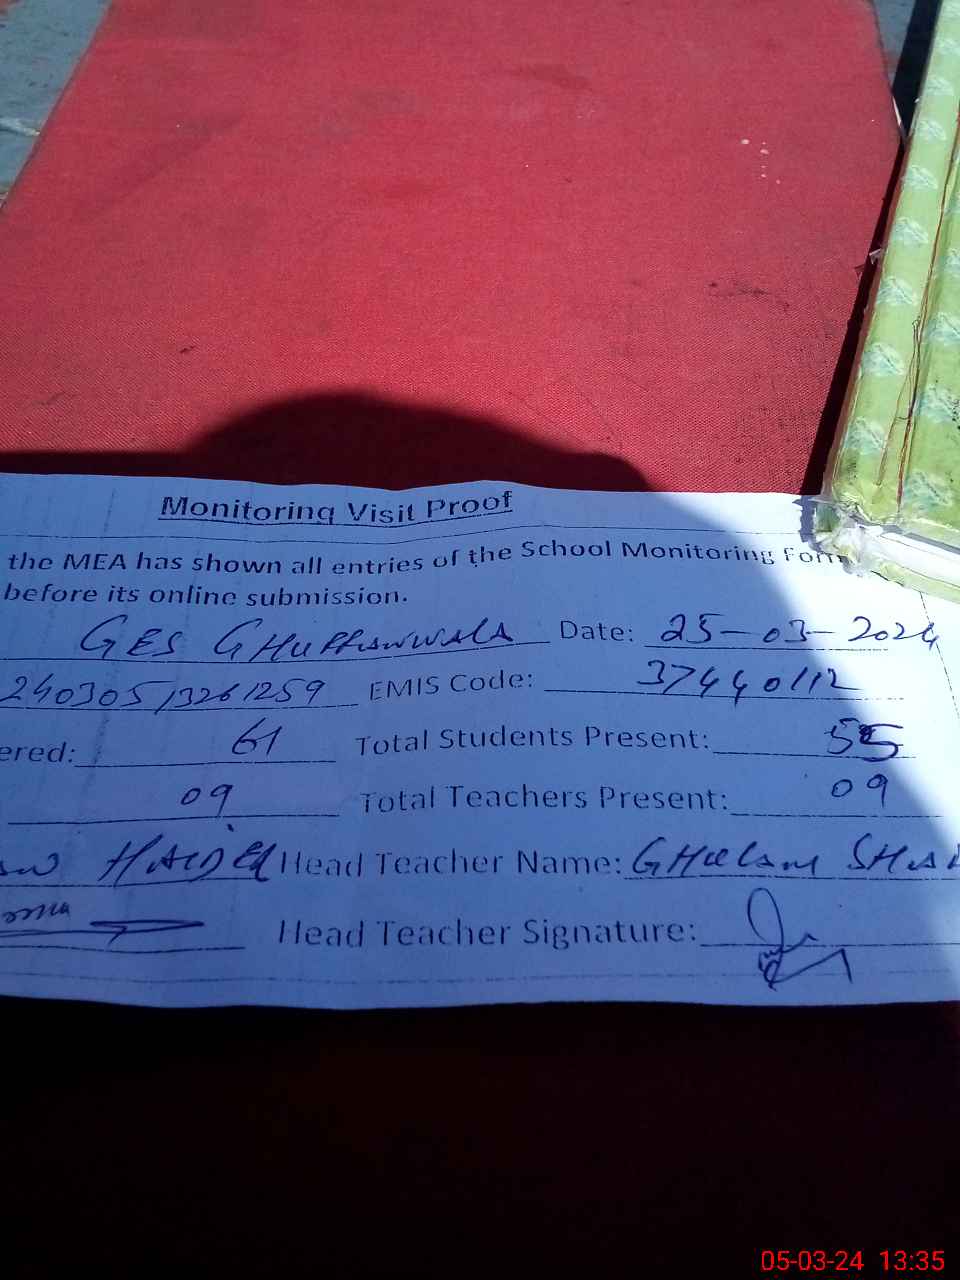 Monitoring Visit Proof
the MEA has shown all entries of the School Monitoring Form
before its online submission.
GES Date: 25-03-2024
24030513261259 EMIS Code: 37440112
ered: 61 Total Students Present: 55
09 Total Teachers Present: 09
HAIDER Head Teacher Name: GHulam
Head Teacher Signature:
05-03-24 13:35